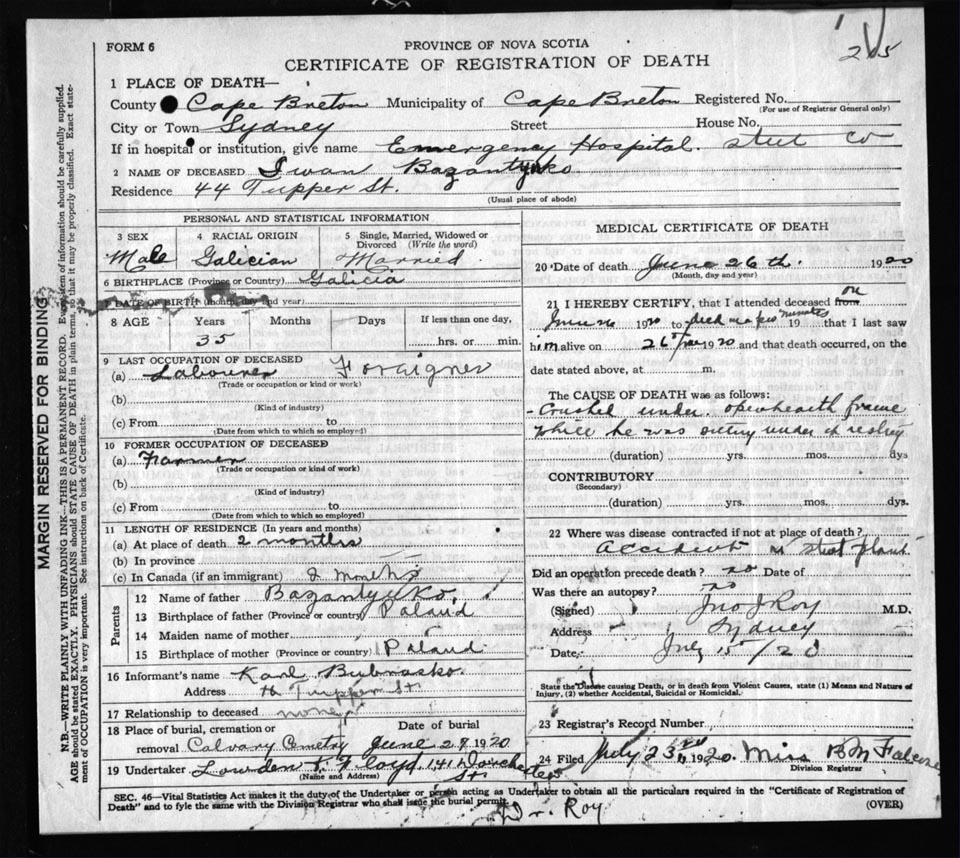 215
FORM 6
PROVINCE OF NOVA SCOTIA
CERTIFICATE OF REGISTRATION OF DEATH
1 PLACE OF DEATH—
County Cape Breton Municipality of Cape Breton Registered No.
(For use of Registrar General only)
City or Town Sydney Street House No.
If in hospital or institution, give name Emergency Hospital. steel Co
2 NAME OF DECEASED Iwan Bazantynko
Residence 44 Tupper St.
(Usual place of abode)
PERSONAL AND STATISTICAL INFORMATION
3 SEX Male
4 RACIAL ORIGIN Galician
5 Single, Married, Widowed or Divorced (Write the word) Married
6 BIRTHPLACE (Province or Country) Galicia
7 DATE OF BIRTH (month, day and year)
8 AGE Years 35 Months Days If less than one day, hrs. or min.
9 LAST OCCUPATION OF DECEASED Foraigner
(a) Labourer
(Trade or occupation or kind or work)
(b)
(Kind of industry)
(c) From to
(Date from which to which so employed)
10 FORMER OCCUPATION OF DECEASED
(a) Farmer
(Trade or occupation or kind of work)
(b)
(Kind of industry)
(c) From to
(Date from which to which so employed)
11 LENGTH OF RESIDENCE (In years and months)
(a) At place of death 2 months
(b) In province
(c) In Canada (if an immigrant) 2 months
Parents
12 Name of father Bazantynko
13 Birthplace of father (Province or country) Poland
14 Maiden name of mother
15 Birthplace of mother (Province or country) Poland
16 Informant's name Karl Bubnasko
Address Tupper St.
17 Relationship to deceased none
18 Place of burial, cremation or removal Calvary Cemetry Date of burial June 29 1920
19 Undertaker Lowden & Floyd 141 Dorchester St
(Name and Address)
MEDICAL CERTIFICATE OF DEATH
20 Date of death June 26th. 1920
(Month, day and year)
21 I HEREBY CERTIFY, that I attended deceased from on
1920 to died in a few minutes 19 that I last saw
him alive on 26 June 1920 and that death occurred, on the
date stated above, at m.
The CAUSE OF DEATH was as follows:
- Crushed under openhearth frame
while he was under it
(duration) yrs. mos. dys
CONTRIBUTORY
(Secondary)
(duration) yrs. mos. dys.
22 Where was disease contracted if not at place of death?
accident at Steel plant
Did an operation precede death? no Date of
Was there an autopsy? no
(Signed) Jno J Roy M.D.
Address Sydney
Date July 15/20
State the Disease causing Death, or in death from Violent Causes, state (1) Means and Nature of
Injury, (2) whether Accidental, Suicidal or Homicidal.
23 Registrar's Record Number
24 Filed July 23rd 1920. Miss
Division Registrar
SEC. 46—Vital Statistics Act makes it the duty of the Undertaker or person acting as Undertaker to obtain all the particulars required in the "Certificate of Registration of
Death" and to fyle the same with the Division Registrar who shall issue the burial permit. (OVER)
Dr. Roy
MARGIN RESERVED FOR BINDING
N.B.—WRITE PLAINLY WITH UNFADING INK—THIS IS A PERMANENT RECORD. Every item of information should be carefully supplied.
AGE should be stated EXACTLY. PHYSICIANS should STATE CAUSE OF DEATH in plain terms, so that it may be properly classified. Exact state-
ment of OCCUPATION is very important. See instructions on back of Certificate.